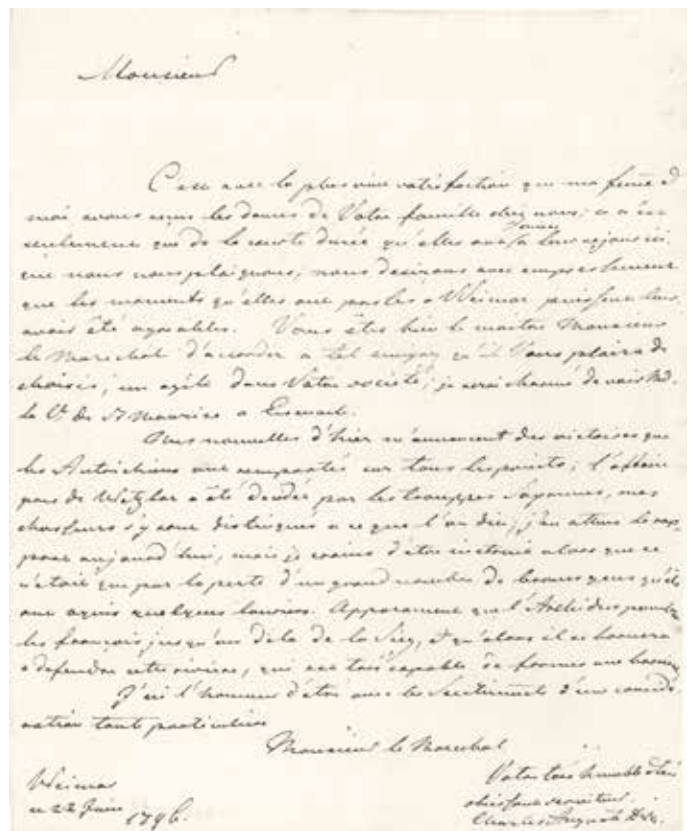 Monsieur
C'est avec la plus vive satisfaction que ma femme et
moi avons vu les dames de Votre famille chez nous; ce n'est
seulement que de la courte durée qu'elles ont sejour ici
que nous nous plaignons, nous desirons avec empressement
que les moments qu'elles ont passées a Weimar puissent leur
avoir été agréables. Vous êtes bien le maitre Monsieur
le Marechal d'accorder a tel qu'il Vous plaira de
choisir, un azile dans Votre societé; je serai charmé de voir Md.
le V. de St Maurice a Eisenach.
nouvelles d'hier m'annoncent des victoires que
les Autrichiens ont remportés sur tous les points; l'affaire
de Wetzlar a été decidée par les trouppes Saxonnes, mes
chasseurs s'y sont distingués a ce que l'on dit; j'en attens le rap,
pour aujourd'hui, mais je crains d'être instruit alors que ce
n'étoit que par la perte d'un grand nombre de braves gens qu'ils
ont aquis quelques lauriers. Apparament que l'Archiduc
les françois jusqu'au dela de la Sieg, et qu'alors il se bornera
a defendre cette riviere, qui est très capable de former une
J'ai l'honneur d'être avec les Sentiments d'une consid
eration toute particuliere
Monsieur le Marechal
Weimar
ce 22 Juin
1796.
Votre très humble et très
obeissant serviteur.
Charles Auguste